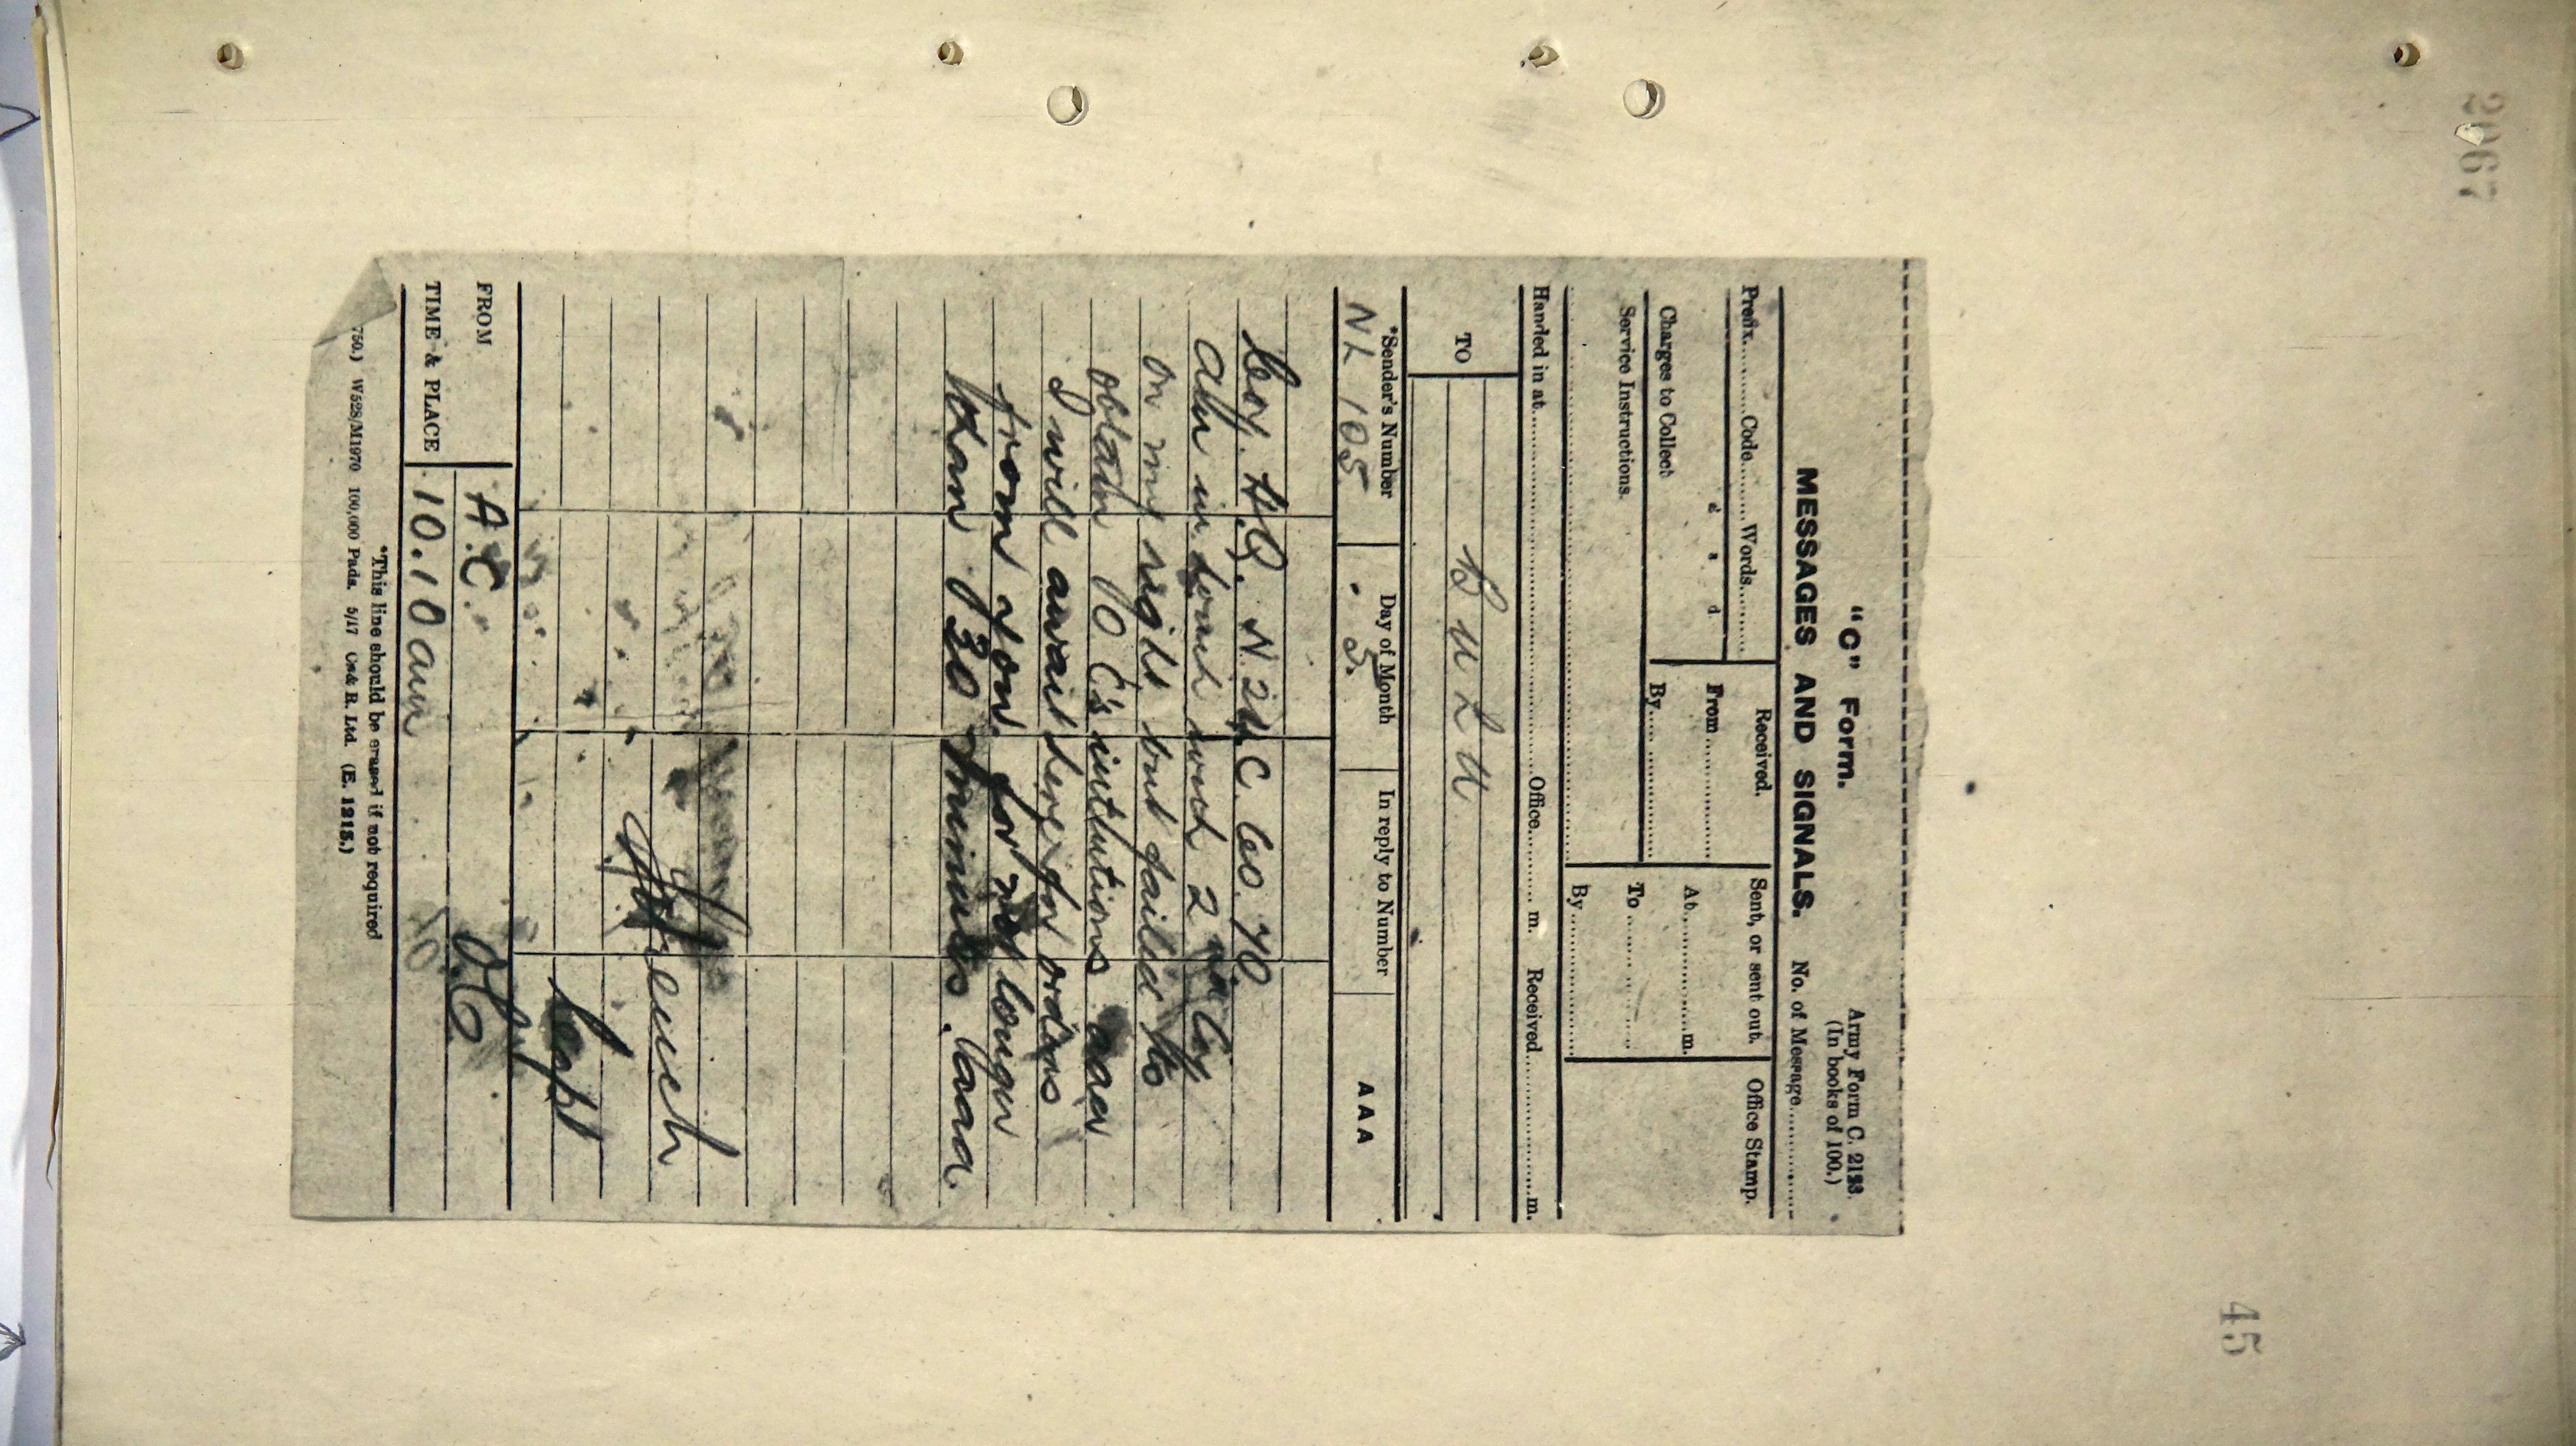 2967
45
"C" Form.
Army Form C. 2123.
(In books of 100.)
MESSAGES AND SIGNALS.
No. of Message
Prefix Code Words
Received.
Sent, or sent out.
Office Stamp.
From
At m.
Charges to Collect
By
To
Service Instructions.
By
Handed in at Office m. Received m.
TO
BULU
*Sender's Number
Day of Month
In reply to Number
AAA
NL 105
5.
Coy. H.Q. N.24.C.60.70
Am in touch with 2 Coy
on my right but failed to
obtain OC's intentions aaa
I will await here for orders
from you for not longer
than 30 minutes. aaa
Capt
FROM
A.C.
OC
TIME & PLACE
10.10 am
*This line should be erased if not required
750.) W528/M1970 100,000 Pads. 5/17 C&R. Ltd. (E. 1213.)